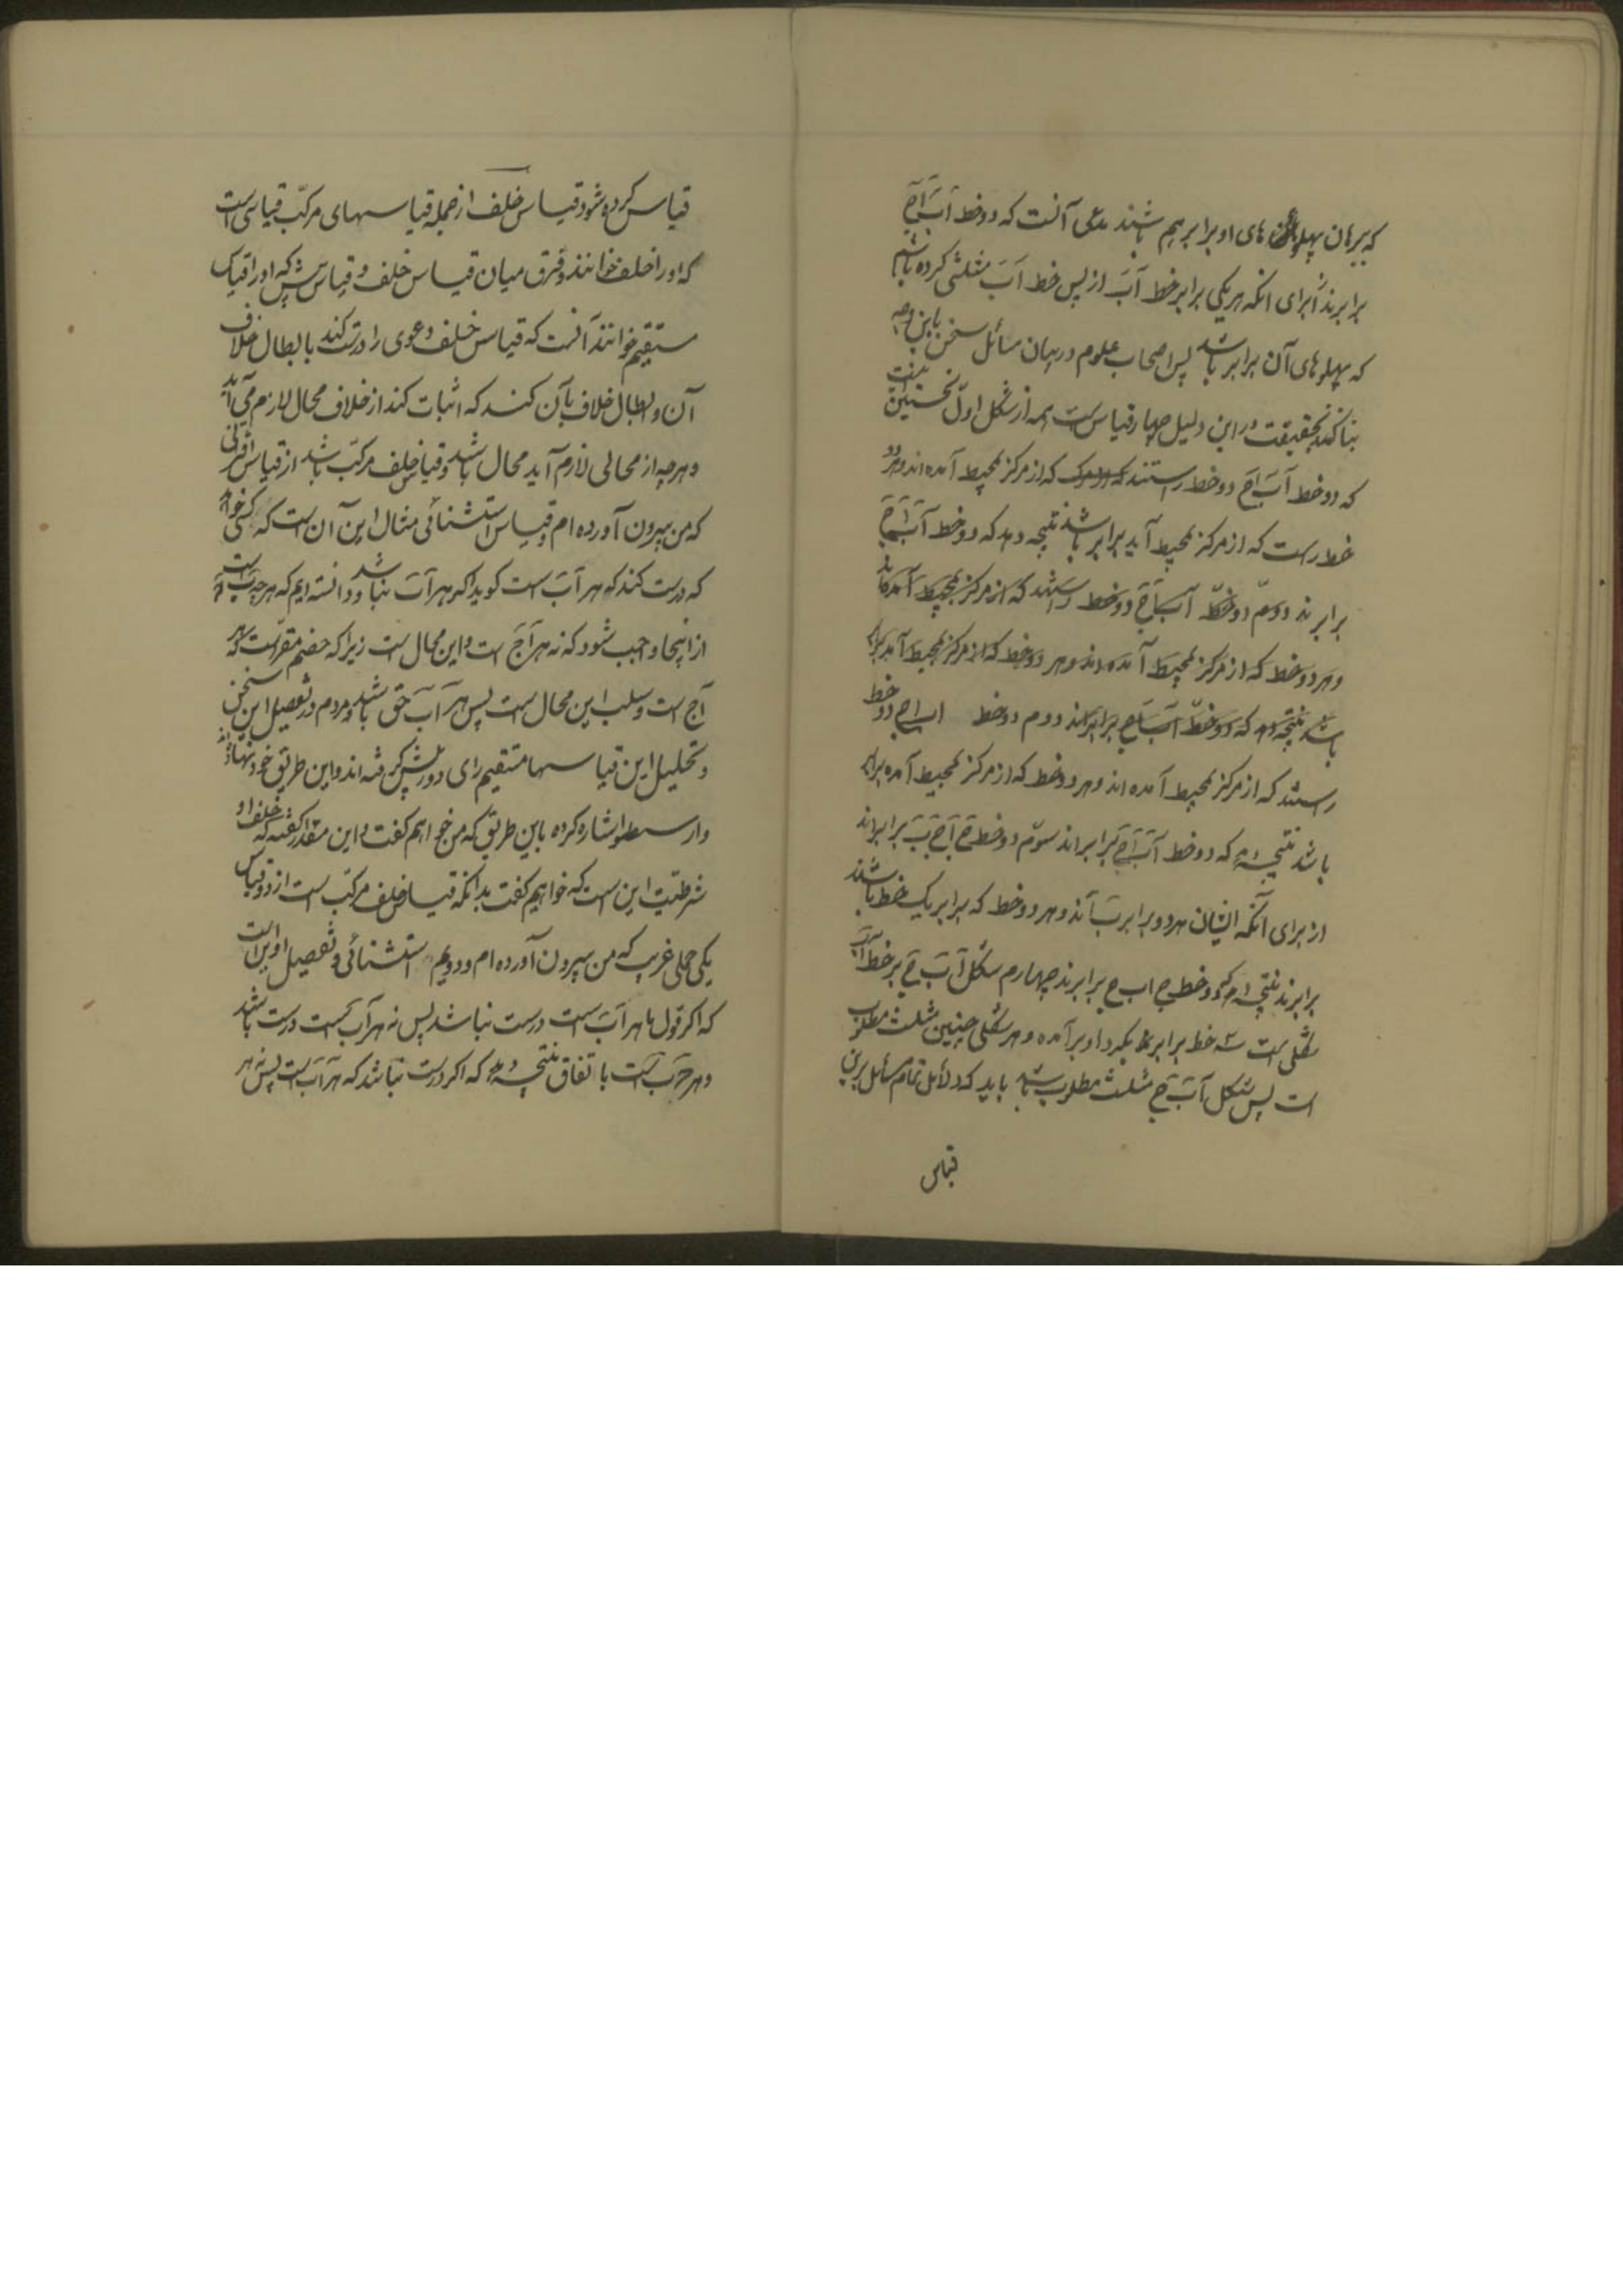 که ببرهان پهلو های او برابر هم باشند مدعی آنست که دو خط آب آج
برابرند از برای انکه هر یکی برابر خط آب از پس خط آب مثلثی کرده باشیم
که پهلوهای آن برابر باشد پس اصحاب علوم در بیان مسائل سخن باین وجه
بنا کنند بحقیقت در این دلیل چهار قیاس ست همه از شکل اول نخستین
که دو خط آب آج دو خط راستند که از مرکز بمحیط آمده اند و هر دو
خط راست که از مرکز بمحیط آید برابر باشند نتیجه دهد که دو خط آب آج
برابرند دوم دو خط آب
و هر دو خط که از مرکز بمحیط آمده اند و هر دو خط که از مرکز بمحیط آمد برابر
باشد نتیجه دهد که دو خط برابراند دوم دو خط دو خط
راستند که از مرکز بمحیط آمده اند و هر دو خط که از مرکز بمحیط آمده برابر
باشد نتیجه دهد که دو خط برابراند سوم دو خط برابراند
از برای آنکه ایشان هر دو برابر آند و هر دو خط که برابر یک خط باشند
برابرند نتیجه دهد که دو خط ج اب ج برابرند چهارم شکل آ ب ج بر خط آب
شکلی است سه خط برابر بگرد او برآمده و هر شکلی چنین مثلث مطلوب
است پس شکل آ ب ج مثلث مطلوب باشد باید که دلائل تمام مسائل برین
قیاس
قیاس کرده شود قیاس خلف از جمله قیاسهای مرکب قیاسی است
که او را خلف خوانند و فرق میان قیاس خلف و قیاس که او را قیاس
مستقیم خوانند آنست که قیاس خلف دعوی را درست کند بابطال خلاف
آن و ابطال خلاف بآن کند که اثبات کند از خلاف محال لازم می آید
و هرچه از محالی لازم آید محال باشد و قیاس خلف مرکب باشد از قیاس اقترانی
که من بیرون آورده ام و قیاس استثنائی مثال این آن است که کسی خواهد
که درست کند که هر آب است کوید اکر هر آب نباشد و دانسته ایم که هر
از اینجا واجب شود که نه هر آج است و این محال است زیرا که خصم مقر است که هر
آج است و سلب این محال است پس هر آب حق باشد و مردم در تفصیل این سخن
و تحلیل این قیاسها مستقیم رای دور پیش گرفته اند و این طریق خود نهاده اند
و ارسطو اشاره کرده باین طریق که من خواهم کفت و این مقدار گفته که خلف او
شرطیت این است که خواهیم کفت بدانکه قیاس خلف مرکب است از دو قیاس
یکی حملی غریب که من بیرون آورده ام و دویم استثنائی و تفصیل او این است
که اکر قول ما هر آب است درست نباشد پس نه هر آب است درست باشد
و هر ج ب است باتفاق نتیجه دهد که اکر درست نباشد که هر آب است پس نه هر